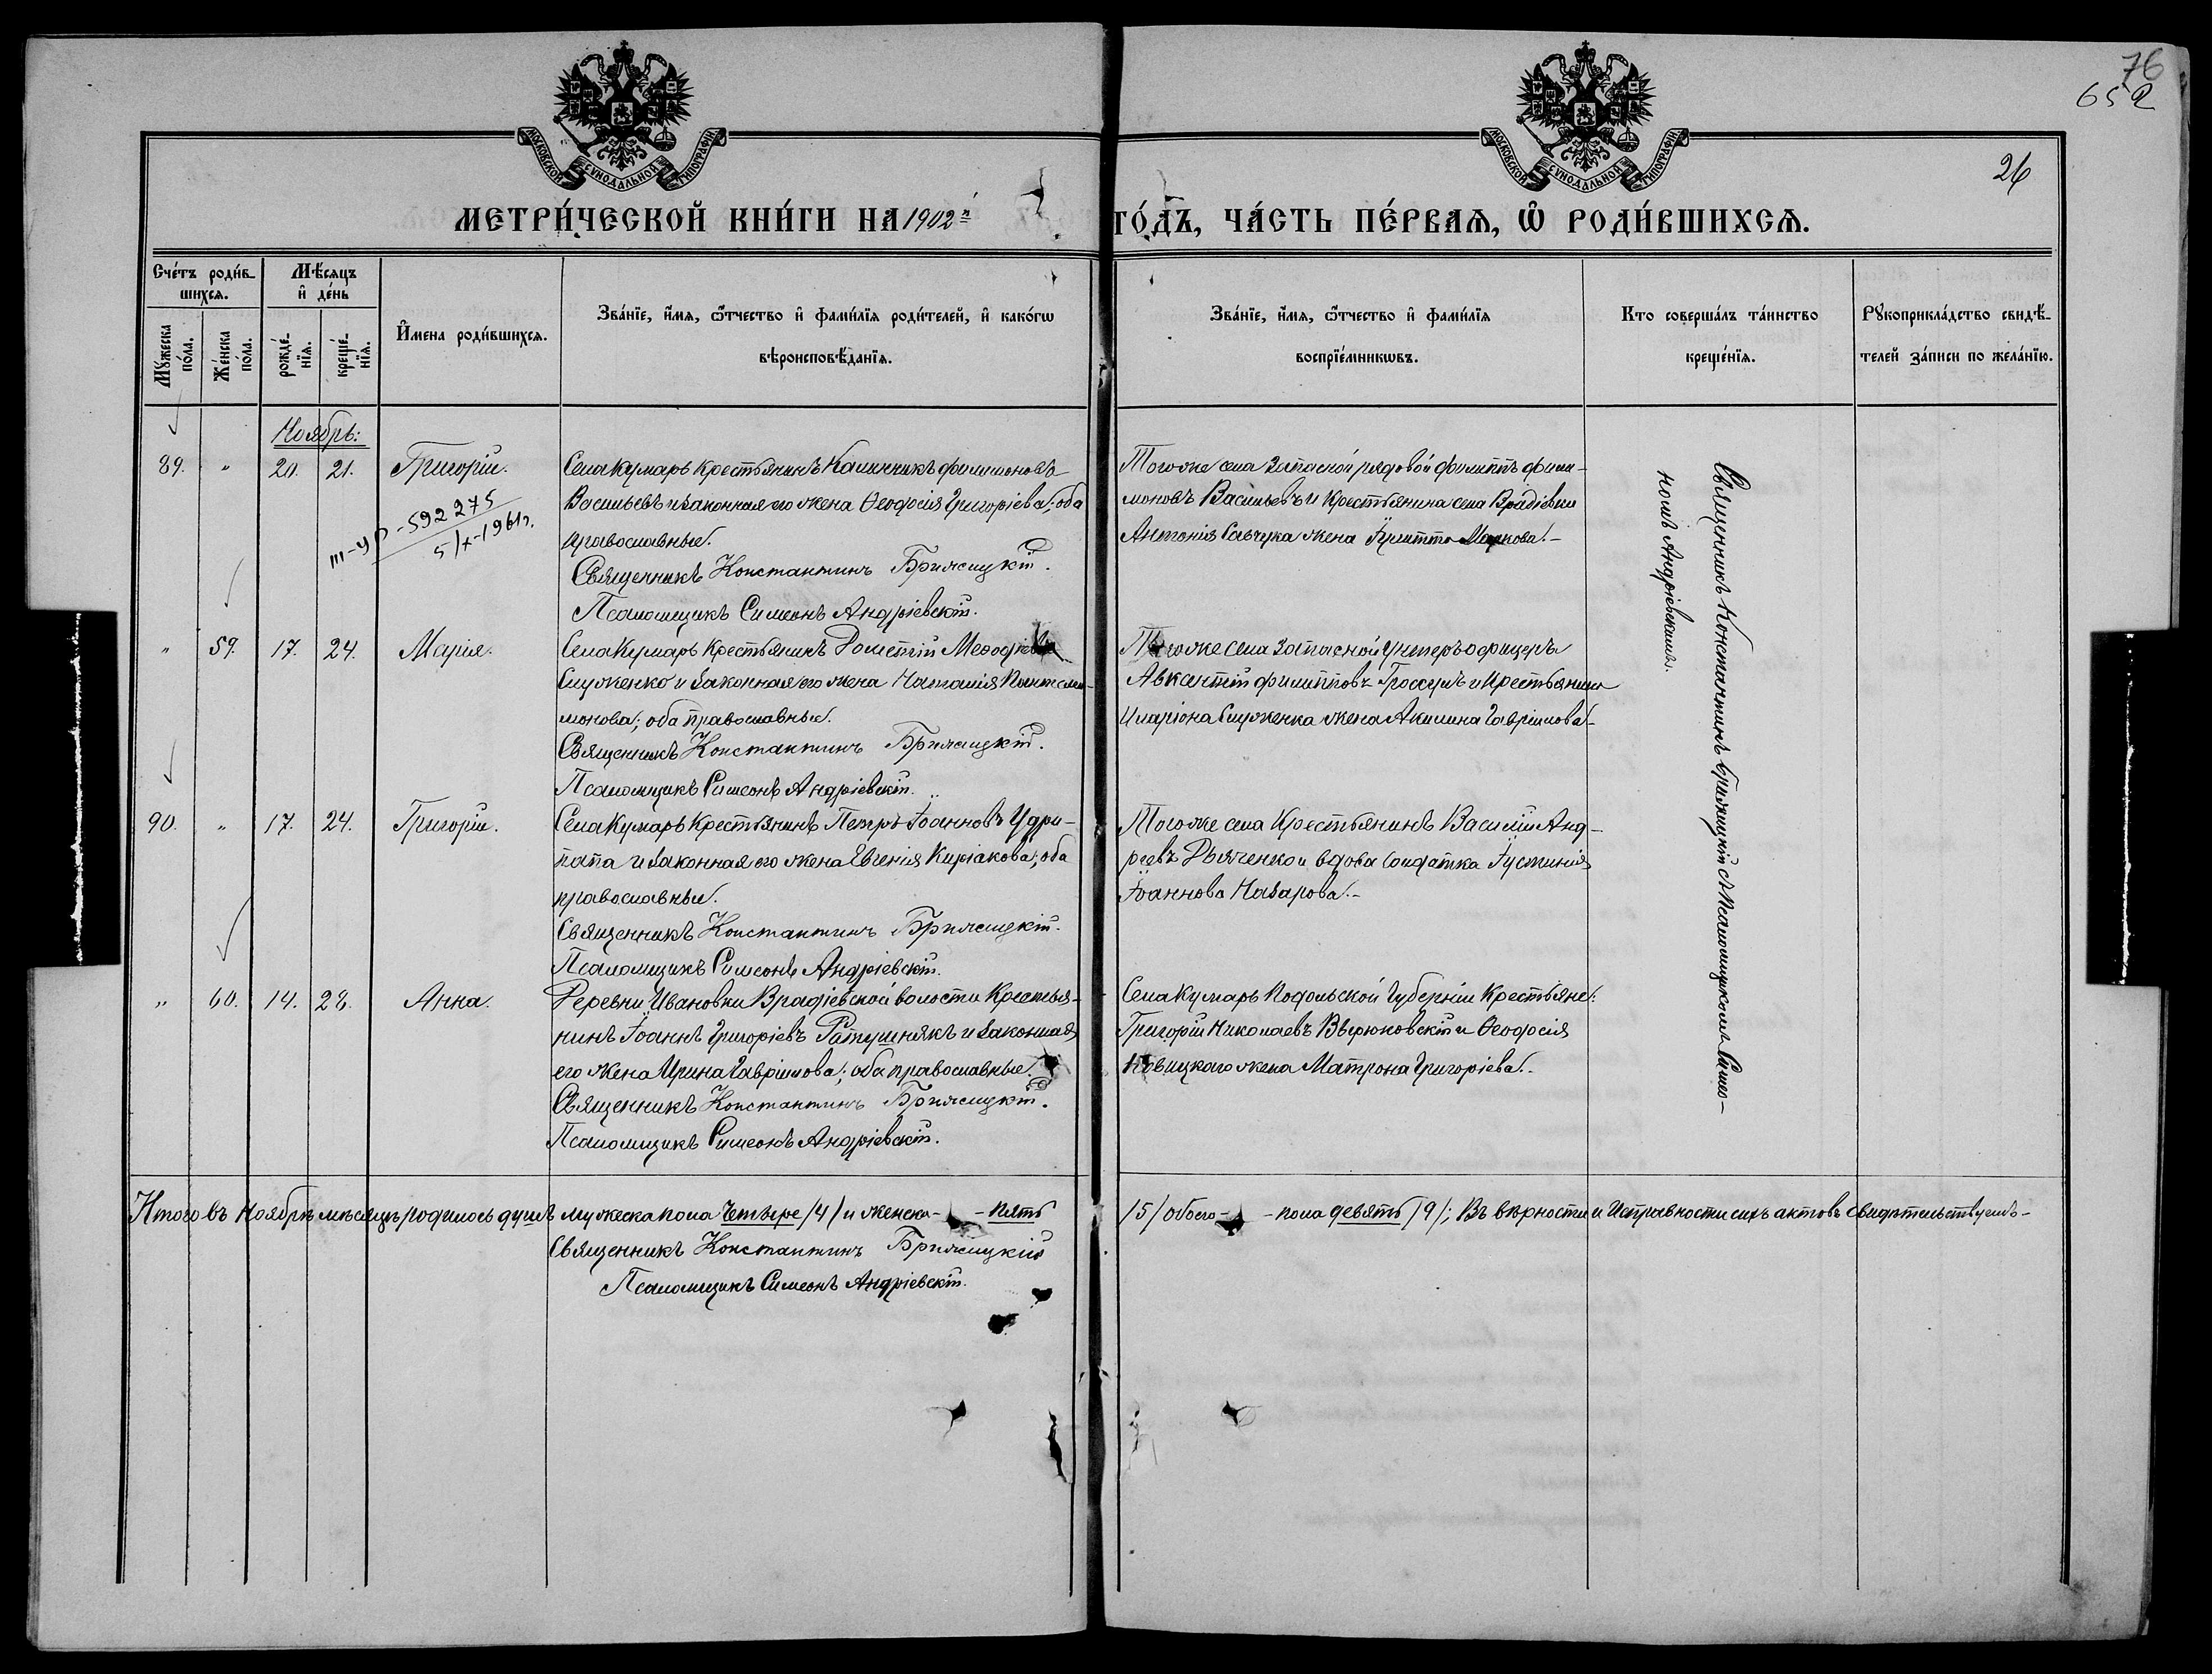 76
652
26
МОСКОВСКОЙ СѴНОДАЛЬНОЙ ТИПОГРАФІИ
МОСКОВСКОЙ СѴНОДАЛЬНОЙ ТИПОГРАФІИ
МЕТРИ́ЧЕСКОЙ КНИ́ГИ НА 1902й
ГО́ДЪ, ЧА́СТЬ ПЕ́РВАѦ, Ѡ҆ РОДИ́ВШИХСѦ.
Сче́тъ роди́в-
шихсѧ.
Мѣ́сѧцъ
и҆ де́нь
Мꙋ́жеска
по́ла.
Же́нска
по́ла.
рожде́-
нїѧ.
креще́-
нїѧ.
И҆мена роди́вшихсѧ.
Зва́нїе, и҆́мѧ, ѻ҆́тчество и҆ фами́лїѧ роди́телей, и҆ како́гѡ
вѣроисповѣ́данїѧ.
Зва́нїе, и҆́мѧ, ѻ҆́тчество и҆ фами́лїѧ
воспрїе́мникѡвъ.
Кто соверша́лъ та́инство
креще́нїѧ.
Рꙋкоприкла́дство свидѣ́-
телей за́писи по жела́нїю.
Ноябрь:
89. " 20. 21. Григорій.
Села Кумаръ Крестьянинъ Калинникъ Филимоновъ
Васильевъ и законная его жена Ѳеодосія Григоріева; оба
православные.
Священникъ Константинъ Бржясицкій.
Псаломщикъ Симеонъ Андріевскій.
Того же села Запасной рядовой Филиппъ Фили-
моновъ Васильевъ и Крестьянина села Врадіевки
Антонія Савчука жена Маркова.-
III-УР-592275
5/X-1961г.
" 59. 17. 24. Марія.
Села Кумаръ Крестьянинъ Меѳодіевъ
Служенко и законная его жена Наталія Пантели-
монова; оба православные.
Священникъ Константинъ Бржясицкій.
Псаломщикъ Симеонъ Андріевскій.
Того же села Запасной Унтеръ офицеръ
Авксентій Филипповъ Гроссулъ и Крестьянина
Иларіона Служенка жена Акилина Гавріилова.-
90. " 17. 24. Григорій.
Села Кумаръ Крестьянинъ Петръ Іоанновъ Удри-
папа и законная его жена Евгенія Киріакова; оба
православные.
Священникъ Константинъ Бржясицкій.
Псаломщикъ Симеонъ Андріевскій.
Того же села Крестьянинъ Василій Анд-
реевъ Дьяченко и вдова солдатка Іустинія
Іоаннова Назарова.-
" 60. 14. 28. Анна.
Деревни Ивановки Врадіевской волости Крестья-
нинъ Іоаннъ Григоріевъ Ратушнякъ и законная
его жена Ирина Гавріилова; оба православные.
Священникъ Константинъ Бржясицкій.
Псаломщикъ Симеонъ Андріевскій.
Села Кумаръ Подольской Губерніи Крестьяне:
Григорій Николаевъ Вьрюковскій и Ѳеодосія
Новицкаго жена Матрона Григоріева.-
Священникъ Константинъ Бржясицкій съ Псаломщикомъ Симео-
номъ Андріевскимъ.
Итого въ Ноябрѣ мѣсяцѣ родилось душъ мужеска пола Четыре /4/ и женска- -пять
/5/ обоего- -пола девять /9/; Въ вѣрности и Исправности сихъ актовъ свидѣтельствуемъ-
Священникъ Константинъ Бржясицкій
Псаломщикъ Симеонъ Андріевскій.